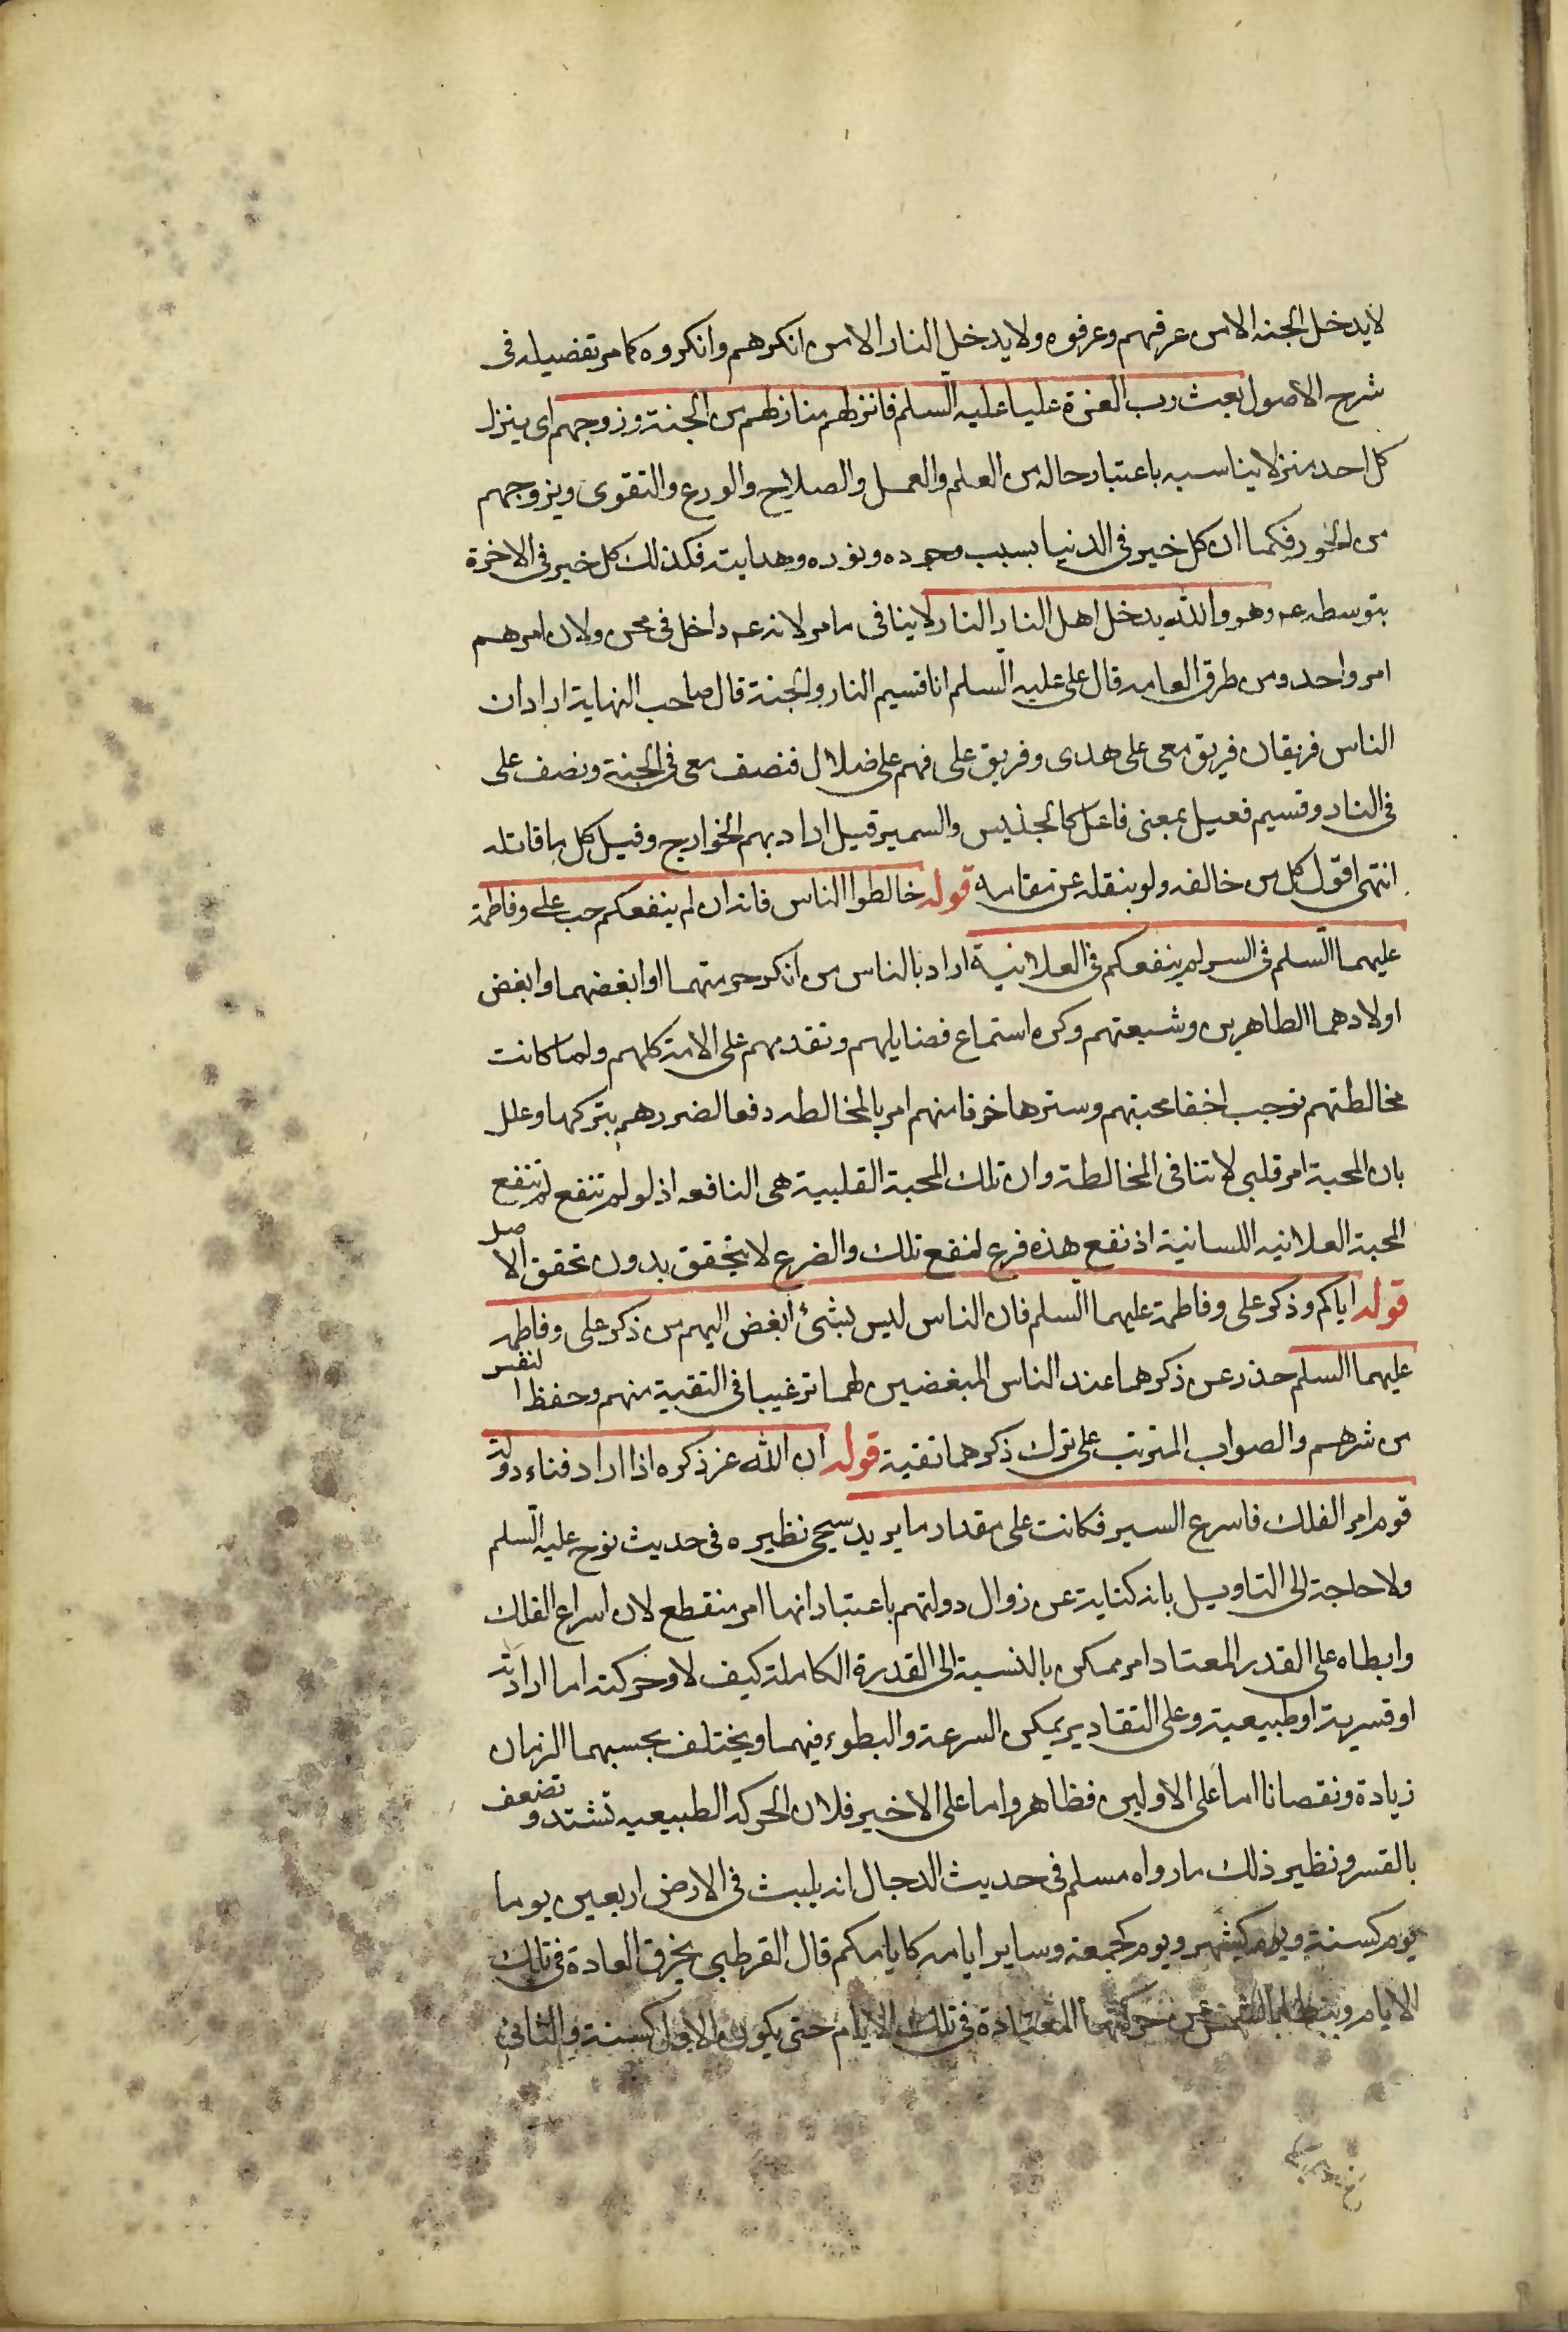 لايدخل الجنه الا من عرفهم وعرفوه ولا يدخل النار الا من انكرهم وانكروه كما مر تفضيله فى
شرح الاصول بعث رب العزة عليا عليه السلم فانزلهم منازلهم من الجنة وزوجهم اى ينزل
كل احد منزلا يناسبه باعتبار حاله من العلم والعمل والصلاح والورع والتقوى ويزوجهم
من الحور فكما ان كل خير فى الدنيا بسبب وجوده ونوره وهدايته فكذلك كل خير فى الاخرة
بتوسطه عم وهو والله يدخل اهل النار النار لا ينافى ما مر لانه عم داخل فى نحن ولان امرهم
امر واحد ومن طرق العامه قال على عليه السلم انا قسيم النار والجنة قال صاحب النهاية اراد ان
الناس فريقان فريق معى على هدى وفريق على فهم على ضلال فنصف معى فى الجنة ونصف على
فى النار وقسيم فعيل بمعنى فاعل كالجليس والسمير قيل اراد بهم الخوارج وقيل كل من قاتله
انتهى اقول كل من خالفه ولو بنقله عن مقامه قوله خالطوا الناس فانه ان لم ينفعكم حب على وفاطمة
عليهما السلم فى السر لم ينفعكم فى العلانية اراد بالناس من انكر حرمتهما او ابغضهما وابغض
اولادهما الطاهرين وشيعتهم وكره استماع فضايلهم وتقدمهم على الامة كلهم ولما كانت
مخالطتهم توجب اخفا محبتهم وسترها خوفا منهم امر بالمخالطه دفعا لضررهم بتركها وعلل
بان المحبة امر قلبى لا تنافى المخالطة وان تلك المحبة القلبية هى النافعه اذ لو لم تنفع لم تنفع
المحبة العلانيه اللسانية اذ نفع هذه فرع لنفع تلك والفرع لا يتحقق بدون تحقق الاصل
قوله اياكم وذكر على وفاطمة عليهما السلم فان الناس ليس شئ ابغض اليهم من ذكر على وفاطمه
عليهما السلم حذر عن ذكرهما عند الناس المبغضين لهما ترغيبا فى التقية منهم وحفظا لنفس
من شرهم والصواب المترتب على ترك ذكرهما تقية قوله ان الله عز ذكره اذا اراد فناء دولة
قوم امر الفلك فاسرع السير فكانت على مقدار ما يريد سيجى نظيره فى حديث نوح عليه السلم
ولا حاجة الى التاويل بانه كناية عن زوال دولتهم باعتبار انها امر منقطع لان اسراع الفلك
وابطاه على القدر المعتاد امر ممكن بالنسبة الى القدرة الكاملة كيف لا وحركته اما ارادية
او قسرية او طبيعية وعلى التقادير يمكن السرعة والبطوء فيهما ويختلف بحسبهما الزمان
زيادة ونقصانا اما على الاولين فظاهر واما على الاخير فلان الحركه الطبيعيه تشتد وتضعف
بالقسر ونظير ذلك ما رواه مسلم فى حديث الدجال انه يلبث فى الارض اربعين يوما
يوم كسنة ويوم كشهر ويوم كجمعة وساير ايامه كايامكم قال القرطبى يخرق العادة فى تلك
الايام ويبطأ بالشمس عن حركتها المعتادة فى تلك الايام حتى يكون الاول كسنة والثانى